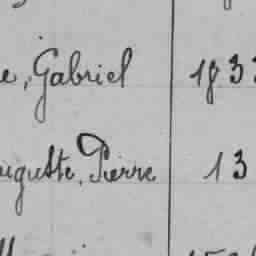 e, Gabriel 183
uguste, Pierre 13